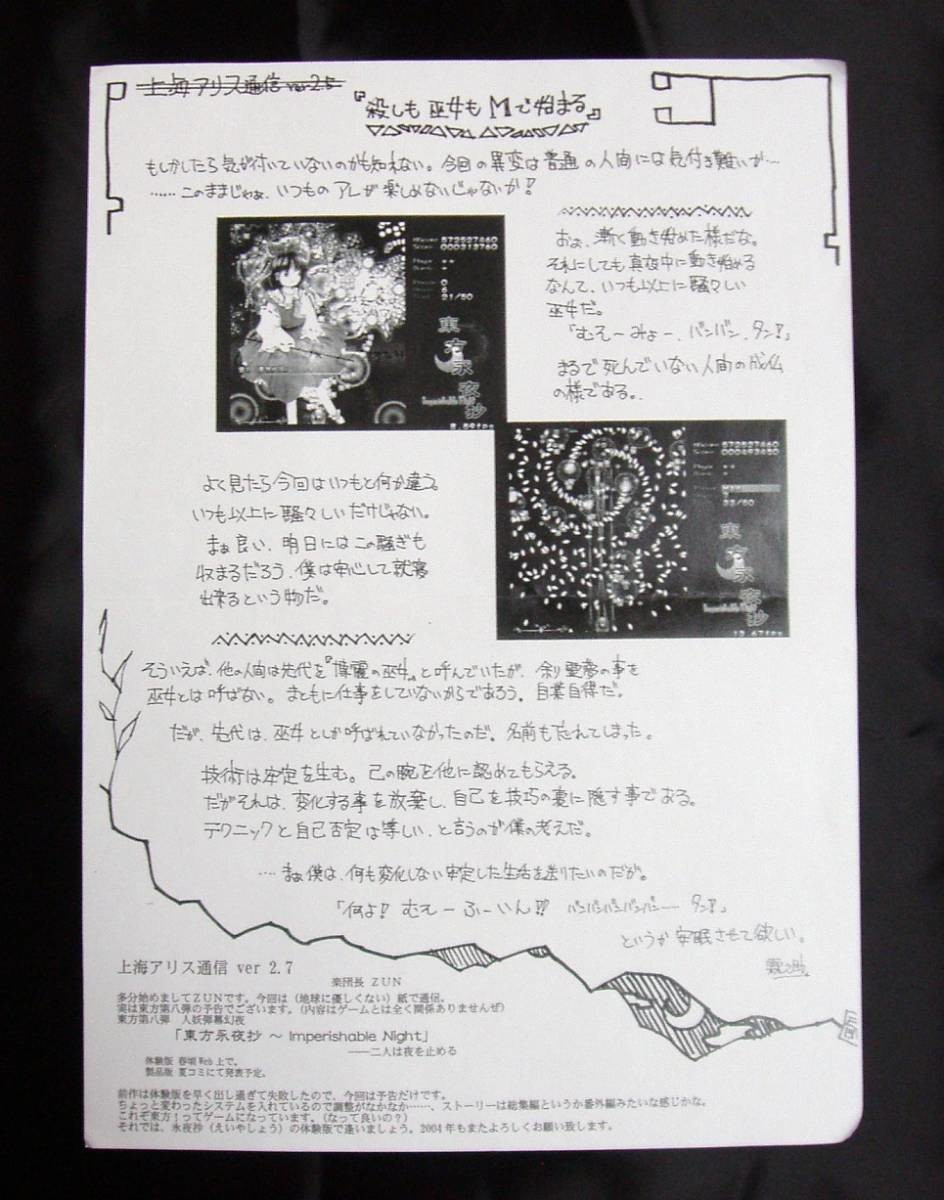 上海アリス通信 ver 2.5
『殺しも 巫女も Mで始まる』
もしかしたら気が付いていないのかも知れない。今回の異変は普通の人間には気付き難いが…
……このままじゃぁ、いつもの アレが 楽しめないじゃないか!
おぉ、漸く動き始めた様だな。
それにしても真夜中に動き始める
なんて、いつも以上に騒々しい
巫女だ。
「むそーみょー、バンバン、タン!」
まるで 死んでいない人間の成仏
の様である。
東方永夜抄
Imperishable Night
572527660
000313760
21/50
8.59fps
よく見たら今回はいつもと何か違う。
いつも以上に騒々しいだけじゃない。
まぁ良い、明日にはこの騒ぎも
収まるだろう、僕は安心して就寝
出来るという物だ。
572527660
000493450
東方永夜抄
Imperishable Night
そういえば、他の人間は先代を『博麗の巫女』と呼んでいたが、余り霊夢の事を
巫女とは呼ばない。まともに仕事をしていないからであろう。自業自得だ。
だが、先代は、巫女としか呼ばれていなかったのだ。名前も忘れてしまった。
技術は安定を生む。己の腕を他に認めてもらえる。
だがそれは、変化する事を放棄し、自己を技巧の裏に隠す事である。
テクニックと自己否定は等しい、と言うのが僕の考えだ。
…まぁ僕は、何も変化しない安定した生活を送りたいのだが。
「何よ! むそーふーいん!! バンバンバンバンバン…… タン!」
というか 安眠させて欲しい。
霖之助
上海アリス通信 ver 2.7
楽団長 ZUN
多分始めましてZUNです。今回は(地球に優しくない)紙で通信。
実は東方第八弾の予告でございます。(内容はゲームとは全く関係ありませんぜ)
東方第八弾 人妖弾幕幻夜
「東方永夜抄 ~ Imperishable Night」
――二人は夜を止める
体験版 春頃 Web 上で。
製品版 夏コミにて発表予定。
前作は体験版を早く出し過ぎて失敗したので、今回は予告だけです。
ちょっと変わったシステムを入れているので調整がなかなか……、ストーリーは総集編というか番外編みたいな感じかな。
これぞ東方!ってゲームになっています。(なって良いの?)
それでは、永夜抄(えいやしょう)の体験版で逢いましょう。2004年もまたよろしくお願い致します。